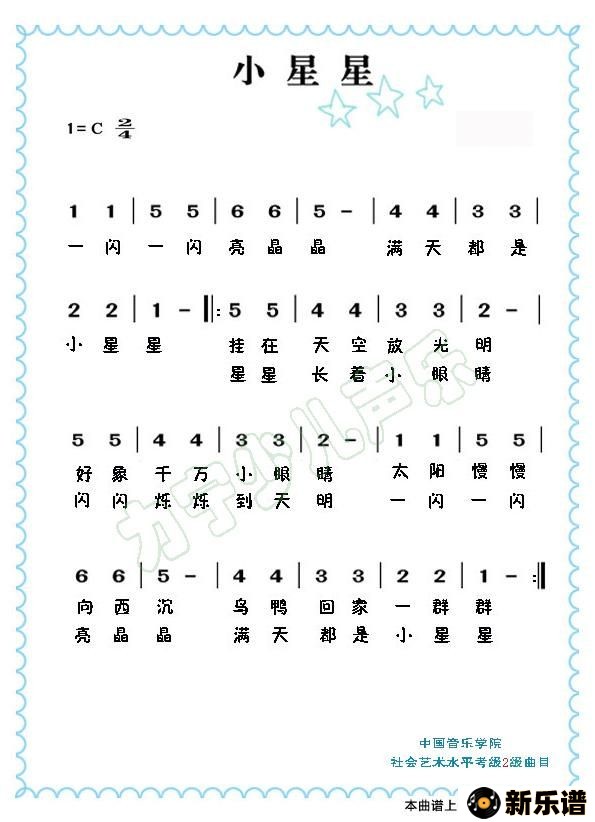 小星星
1=C 2/4
1 1 | 5 5 | 6 6 | 5 - | 4 4 | 3 3 |
一闪一闪亮晶晶 满天都是
2 2 | 1 - ‖: 5 5 | 4 4 | 3 3 | 2 - |
小星星 挂在天空放光明
星星长着小眼睛
5 5 | 4 4 | 3 3 | 2 - | 1 1 | 5 5 |
好象千万小眼睛 太阳慢慢
闪闪烁烁到天明 一闪一闪
6 6 | 5 - | 4 4 | 3 3 | 2 2 | 1 - :‖
向西沉 乌鸭回家一群群
亮晶晶 满天都是小星星
力宁少儿声乐
中国音乐学院
社会艺术水平考级2级曲目
本曲谱上 新乐谱